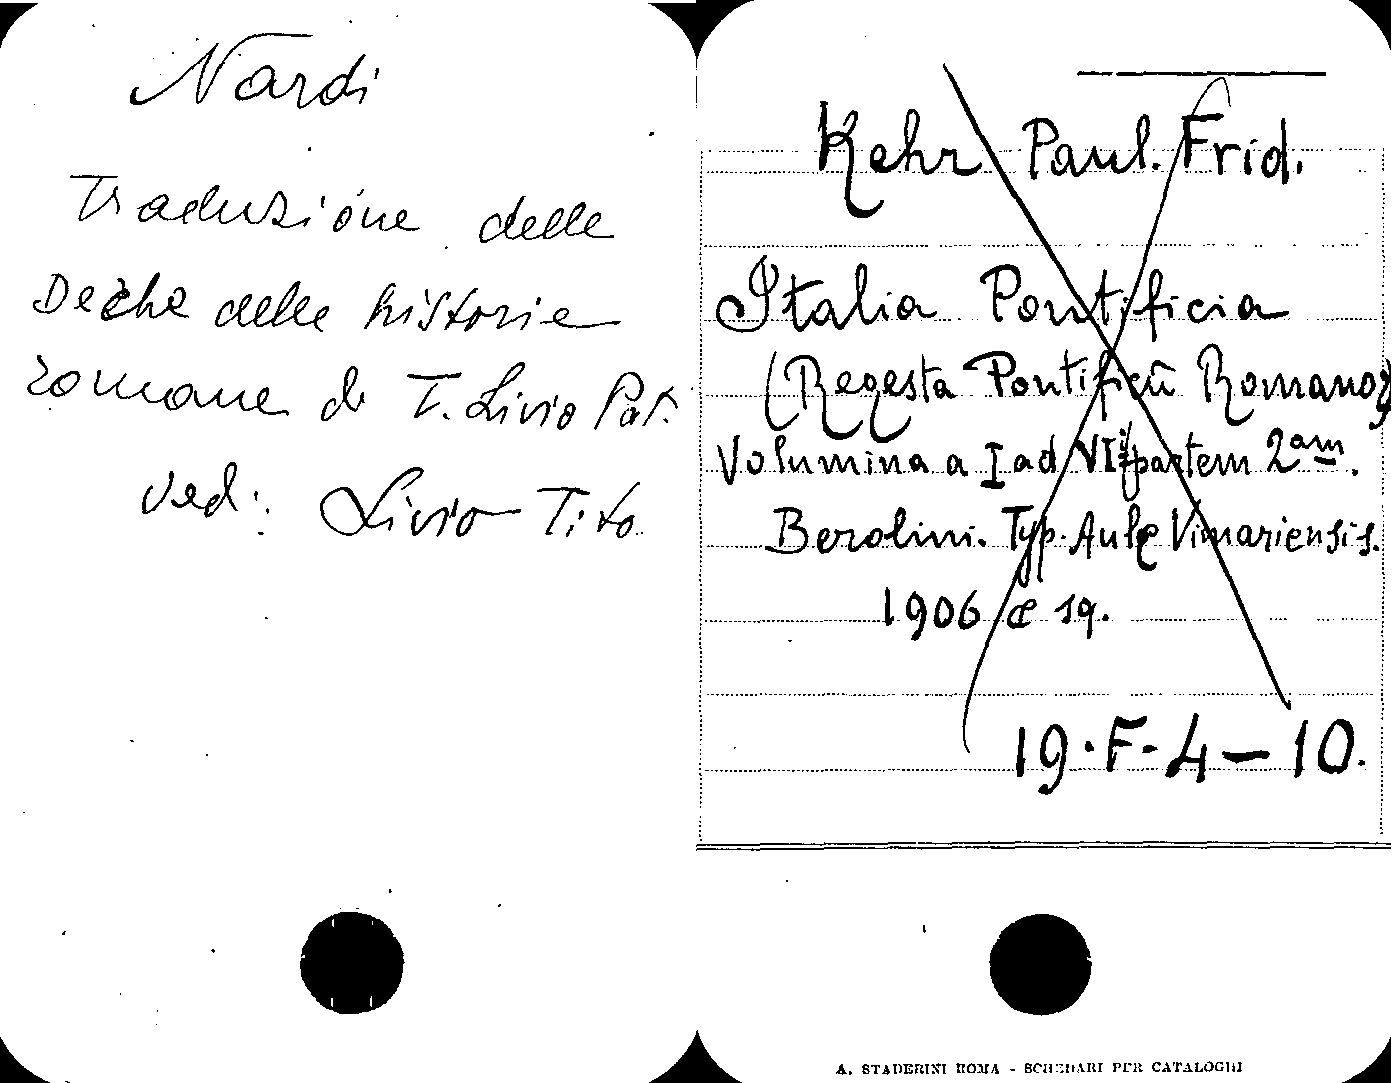 Nardi
Traduzione delle
Deche delle historie
romane di T. Livio Pat.
ved: Livio Tito
Kehr Paul. Frid.
Italia Pontificia
(Regesta Pontificū Romanoȝ
Volumina a I ad VI partem 2am.
Berolini. Typ. Aulę Vimariensis.
1906 e 19.
19.F.4-10.
A. STADERINI ROMA - SCHEDARI PER CATALOGHI